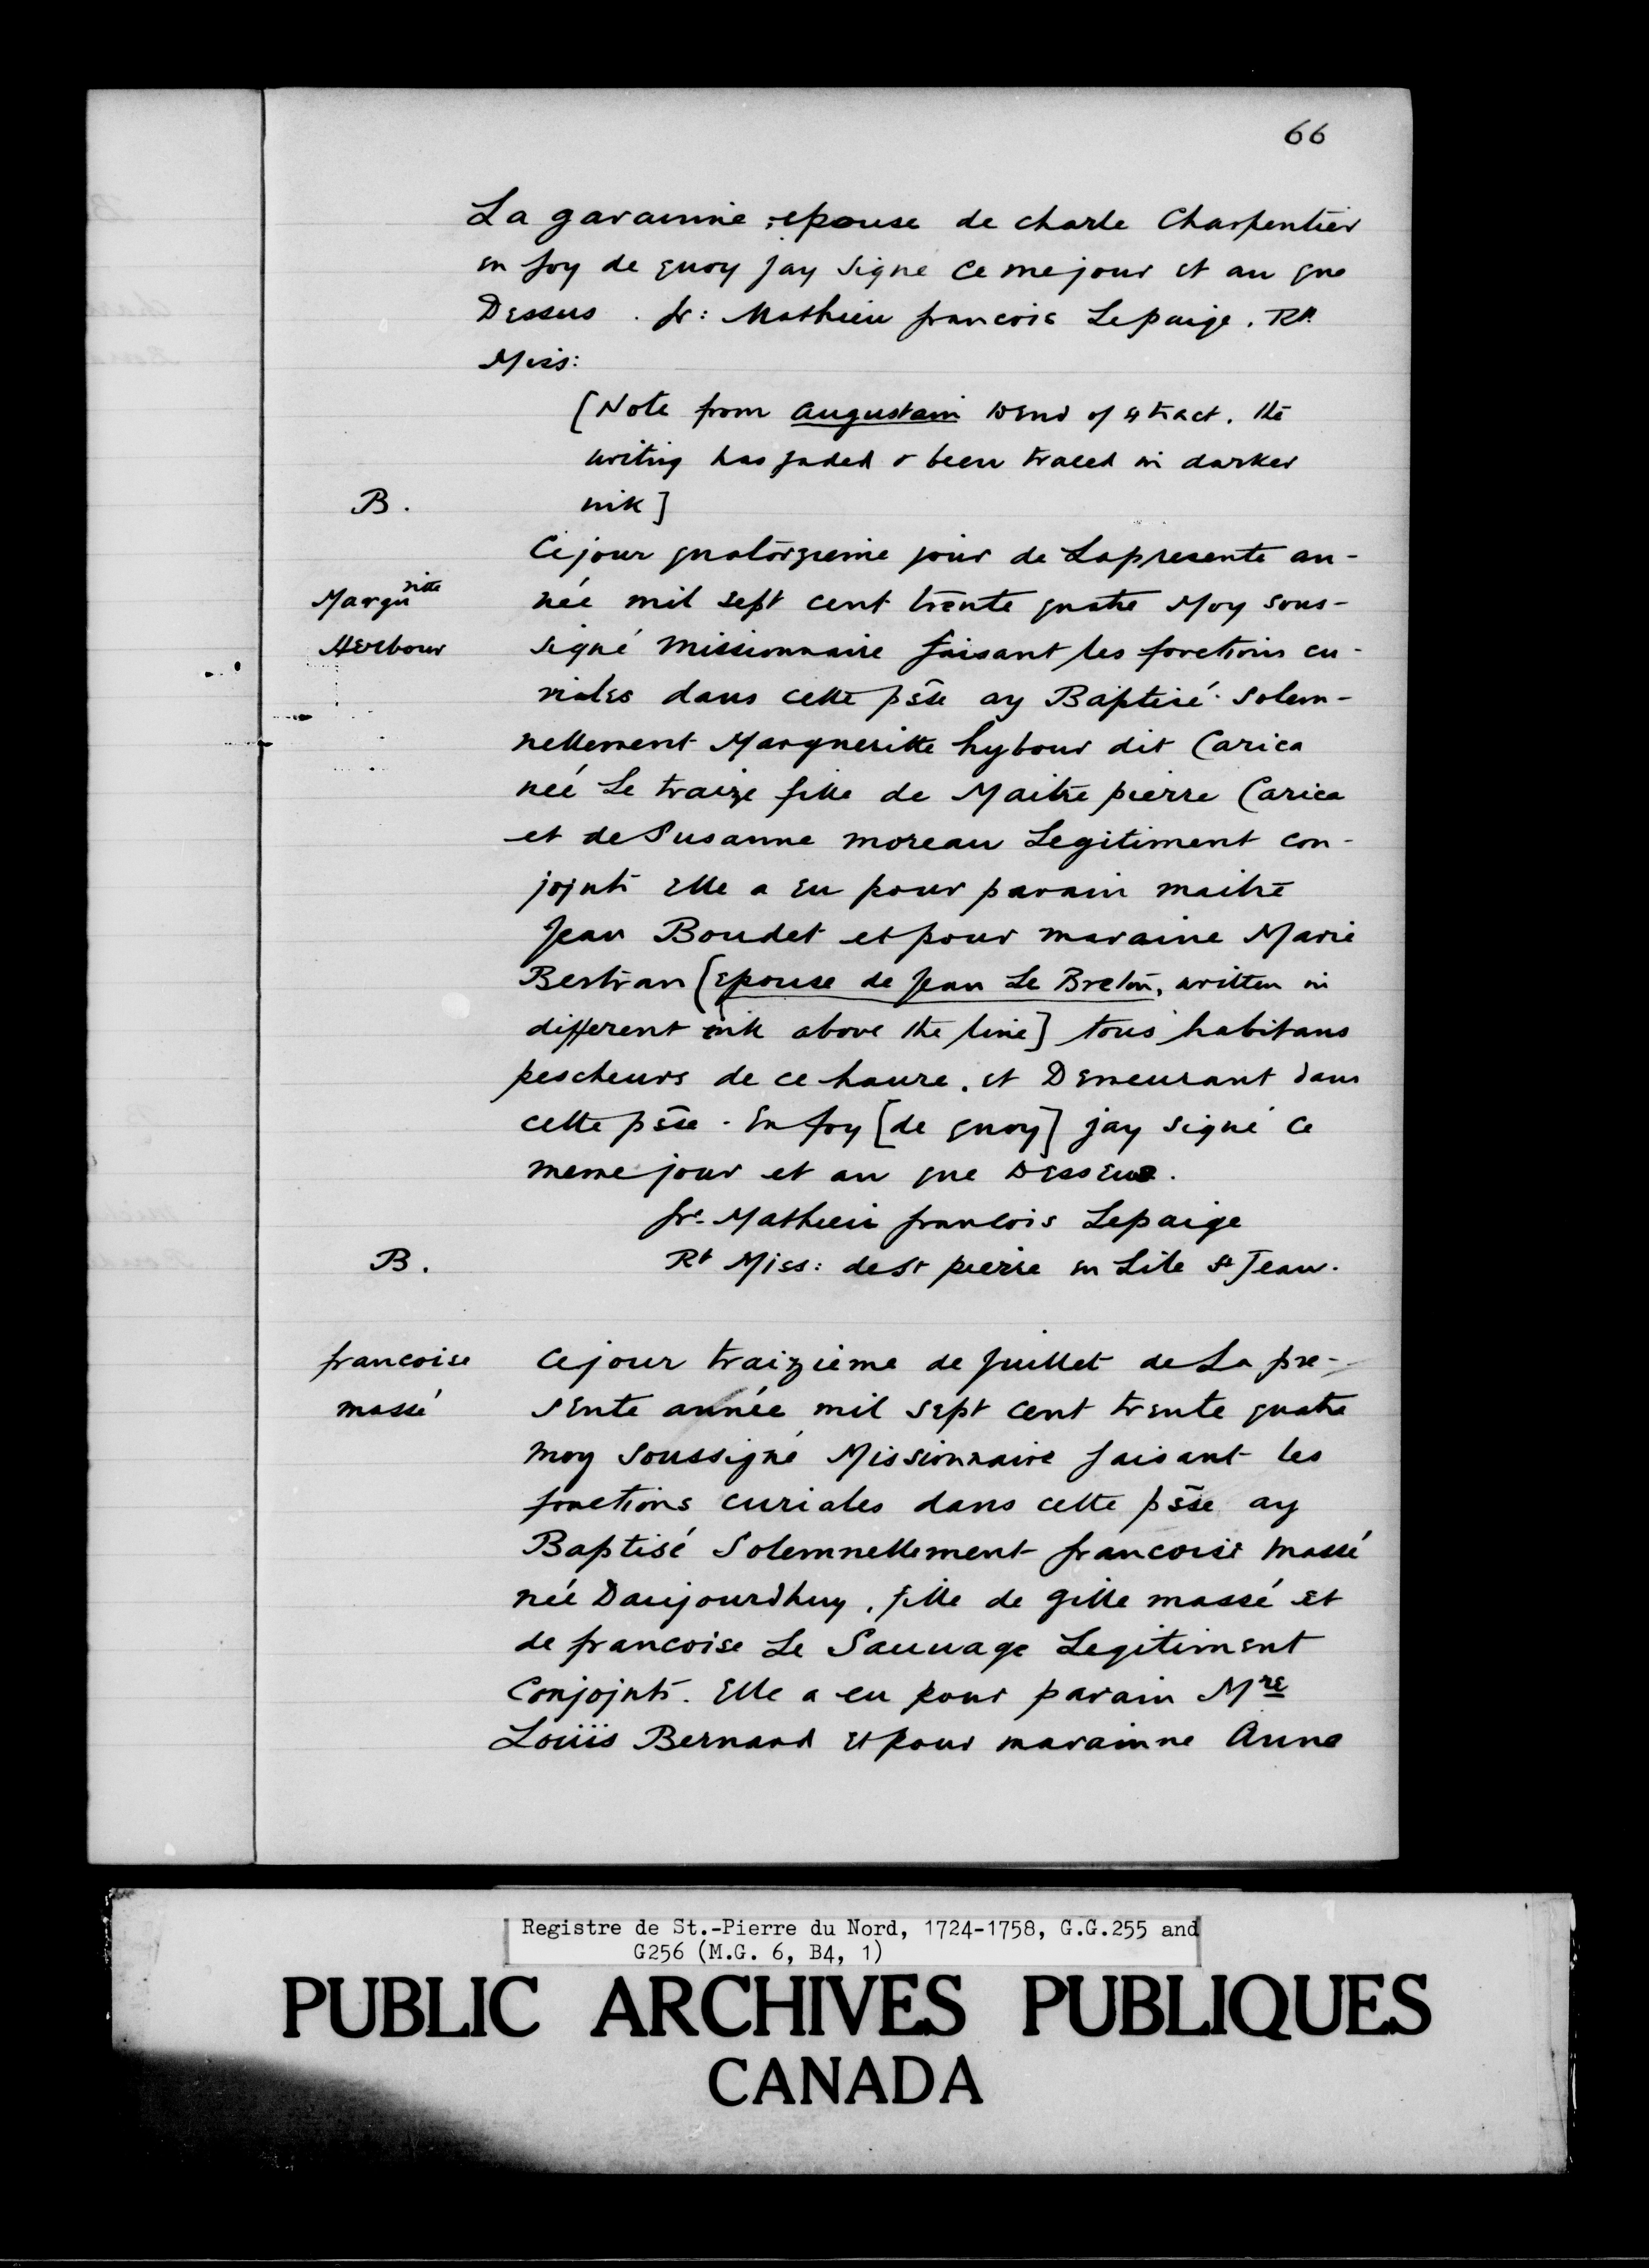 66
La garaunie epouse de charle Charpentier
en foy de quoy jay Signe ce me jour et an que
Dessus . fr: Mathieu francois Lepaige . Rt
Miss:
[Note from augustain to end of extract. the
writing has faded & been traced in darker
B. ink]
Ce jour quatorzieme jour de Lapresente an-
Margueritte née mil sept cent trente quatre Moy sous-
Herbour signé missionnaire faisant les fonctions cu-
riales dans cette psse ay Baptisé solem-
nellement Margueritte hybour dit Carica
née Le traize fille de Maitre pierre Carica
et de Susanne moreau Legitiment con-
joints Elle a Eu pour parain maitre
Jean Boudet et pour maraine Marie
Bertran [Epouse de Jean Le Breton, written in
different ink above the line] tous habitans
pescheurs de ce haure. et Demeurant dans
cette psse. En foy [de quoy] jay signé ce
meme jour et an que Dessus.
fr. Mathieu francois Lepaige
B. Rt Miss: de St pierre en Lile St Jean.
francoise Ce jour traizieme de Juillet de La pre-
massé sente année mil sept cent trente quatre
moy soussigné Missionnaire faisant les
fonctions curiales dans cette psse ay
Baptisé Solemnellement francoise massé
née Daujourdhuy, fille de gille massé et
de francoise Le Sauuage Legitiment
Conjoints. Elle a eu pour parain Mre
Louïs Bernard et pour marainne Anne
Registre de St.-Pierre du Nord, 1724-1758, G.G.255 and
G256 (M.G. 6, B4, 1)
PUBLIC ARCHIVES PUBLIQUES
CANADA